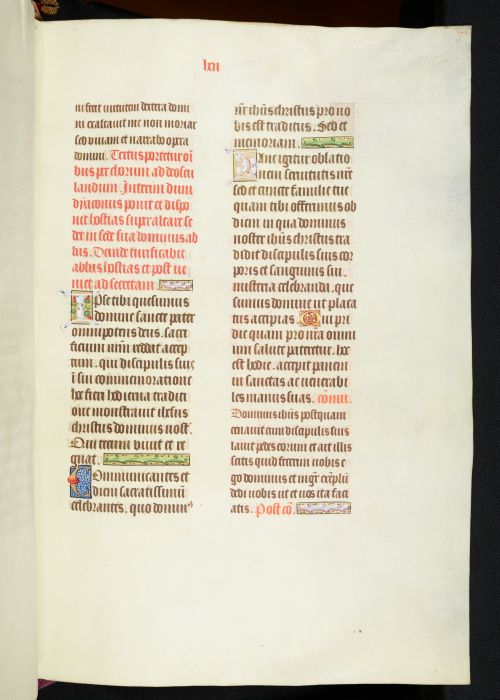 lxii
ni fecit virtutem dextera domi
ni exaltavit me non moriar
sed vivam et narrabo opera
domini. Textus portetur oi
bus per chorum ad deoscu
landum. Interim dum
dyaconus ponit et dispo
nit hostias super altare se
det in sede sua dominus ab
bas. Deinde turificabit
abbas hostias et post ve
niet ad secretam
Ipse tibi quesumus
domine sancte pater
omnipotens deus. sacri
ficium nrm reddat accep
tum. qui discipulis suis
i sui commemoratione
hoc fieri hodierna tradici
one monstravit ihesus
christus dominus nost.
Qui tecum vivit et re
gnat.
Communicantes et
diem sacratissimu
celebrantes. quo domin
nr ihus christus pro no
bis est traditus. Sed et
memoriam.
Hanc igitur oblatio
nem servitutis nre
sed et cuncte familie tue
quam tibi offerimus ob
diem in qua dominus
noster ihus christus tra
didit discipulis suis cor
poris et sanguinis sui.
misteria celebranda. que
sumus domine ut placa
tus accipias. Qui pri
die quam pro nra omni
um salute pateretur. hoc
est hodie. accepit panem
in sanctas ac venerabi
les manus suas. comu.
Dominus ihus postquam
cenavit cum discipulis suis
lavit pedes eorum et ait illis
scitis quid fecerim vobis e
go dominus et mgr exeplu
dedi vobis ut et vos ita faci
atis. Post co.